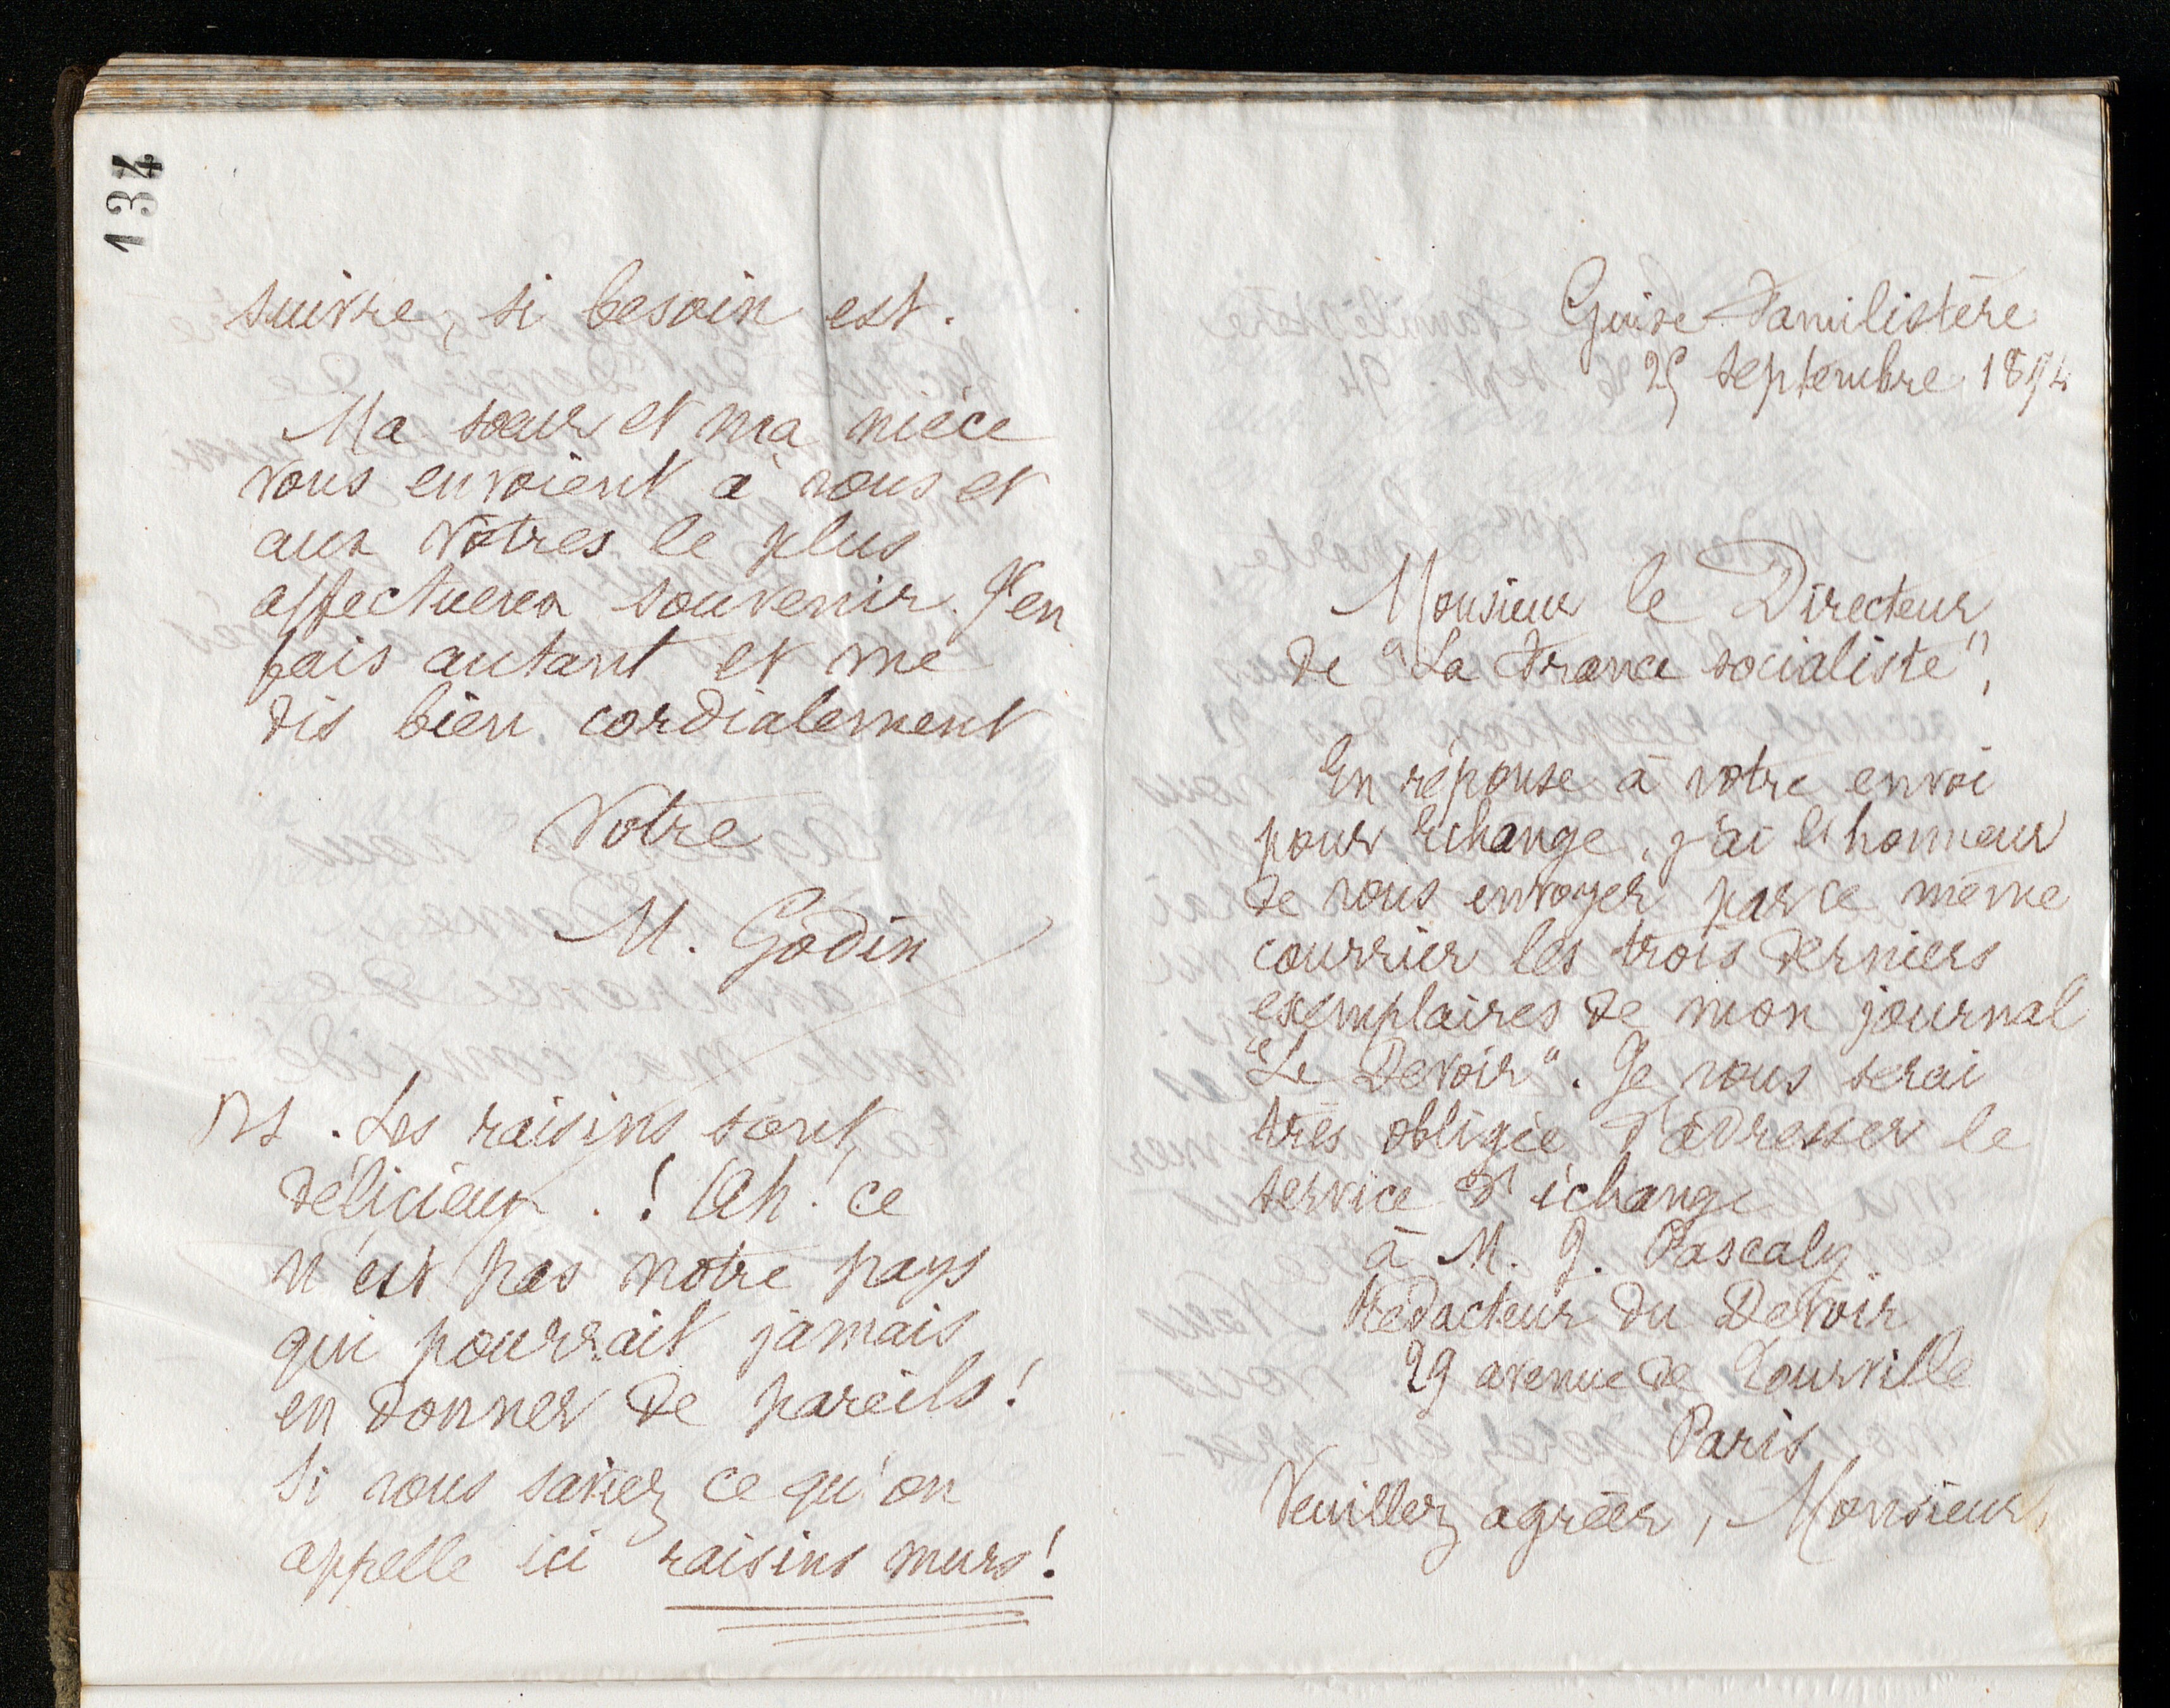 134
suivre, si besoin est.
Ma soeur et ma nièce
vous envoient à vous et
aux vôtres le plus
affectueux souvenir. J'en
fais autant et me
dis bien cordialement
Votre
M. Godin
PS. Les raisins sont
délicieux. ! Ah! ce
n'est pas notre pays
qui pourrait jamais
en donner de pareils!
Si vous saviez ce qu'on
appelle ici raisins murs!
Guise Familistère
25 septembre 1894
Monsieur le Directeur
de "La France socialiste",
En réponse à votre envoi
pour échange, j'ai l'honneur
de vous envoyer par ce même
courrier les trois derniers
exemplaires de mon journal
"Le Devoir". Je vous serai
très obligée d'adresser le
service d'échange
à M. J. Pascaly
Rédacteur du Devoir
29 avenue de Tourville
Paris
Veuillez agréer, Monsieur,